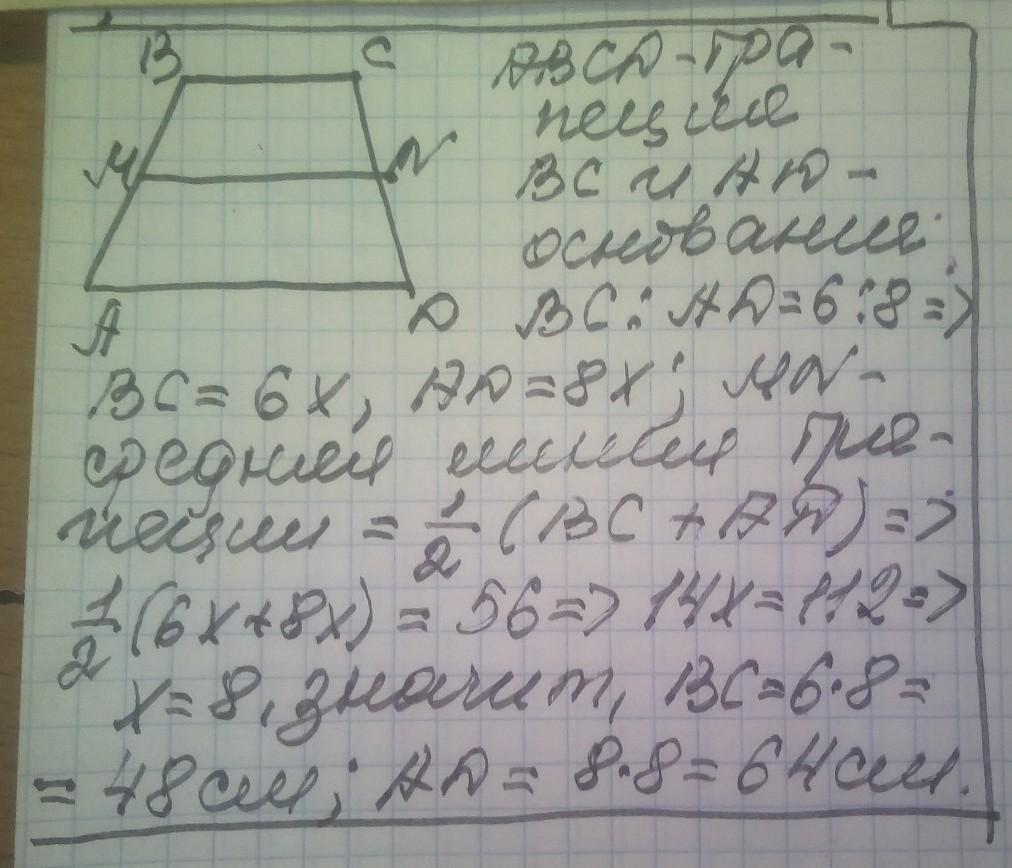 B C
M N
A D
ABCD - тра-
пеция
BC и AD -
основания.
BC : AD = 6 : 8 =>
BC = 6x, AD = 8x; MN -
средняя линия тра-
пеции = 1/2 (BC + AD) =>
1/2 (6x + 8x) = 56 => 14x = 112 =>
x = 8, значит, BC = 6·8 =
= 48 см; AD = 8·8 = 64 см.